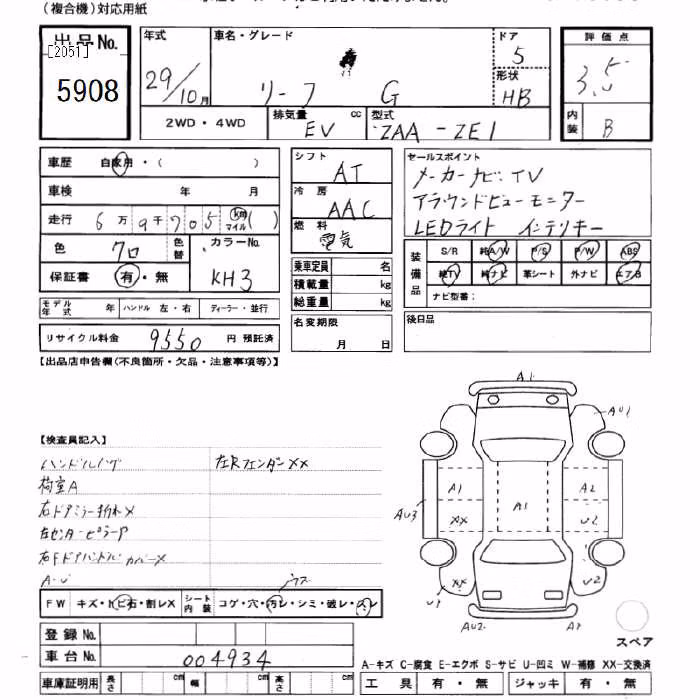 (複合機)対応用紙
出品No.
[2051]
5908
年式
29/10月
車名・グレード
リーフ G
ドア
5
形状
HB
評価点
3.5
内装
B
2WD・4WD
排気量 cc
EV
型式
ZAA-ZE1
車歴 自家用・( )
車検 年 月
走行 6万9千705 km マイル ( )
色 クロ 色替
カラーNo.
KH3
保証書 有・無
モデル年式 年 ハンドル 左・右 ディーラー・並行
リサイクル料金 9550円 預託済
シフト
AT
冷房
AAC
燃料
電気
乗車定員 名
積載量 kg
総重量 kg
名変期限
月 日
セールスポイント
メーカーナビ.TV
アラウンドビューモニター
LEDライト インテリキー
装備品
S/R 純A/W P/S P/W ABS
純TV 純ナビ 革シート 外ナビ エアB
ナビ型番:
後日品
【出品店申告欄(不良箇所・欠品・注意事項等)】
【検査員記入】
左Rフェンダー XX
荷室A
右ドアミラー折れX
左センターピラーA
右Fドアハンドルカバー X
A・U
FW キズ・トビ石・割レX
シート内装 コゲ・穴・汚レ・シミ・破レ・スレ
登録No.
車台No. 004934
車庫証明用 長さ cm 幅 cm 高さ cm
A1
AU1
A1
A1
A2
AU3
XX
U2
XX
U2
AU2
スペア
A-キズ C-腐食 E-エクボ S-サビ U-凹ミ W-補修 XX-交換済
工具 有・無 ジャッキ 有・無